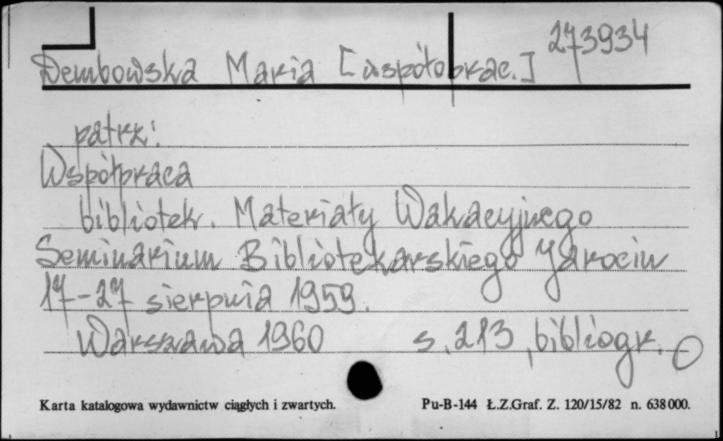 273934
Dembowska Maria [współoprac.]
patrz:
Współpraca
bibliotek. Materiały Wakacyjnego
Seminarium Bibliotekarskiego Jarocin
17-27 sierpnia 1959.
Warszawa 1960 s. 213, bibliogr.
Karta katalogowa wydawnictw ciągłych i zwartych. Pu-B-144 Ł.Z.Graf. Z. 120/15/82 n. 638000.